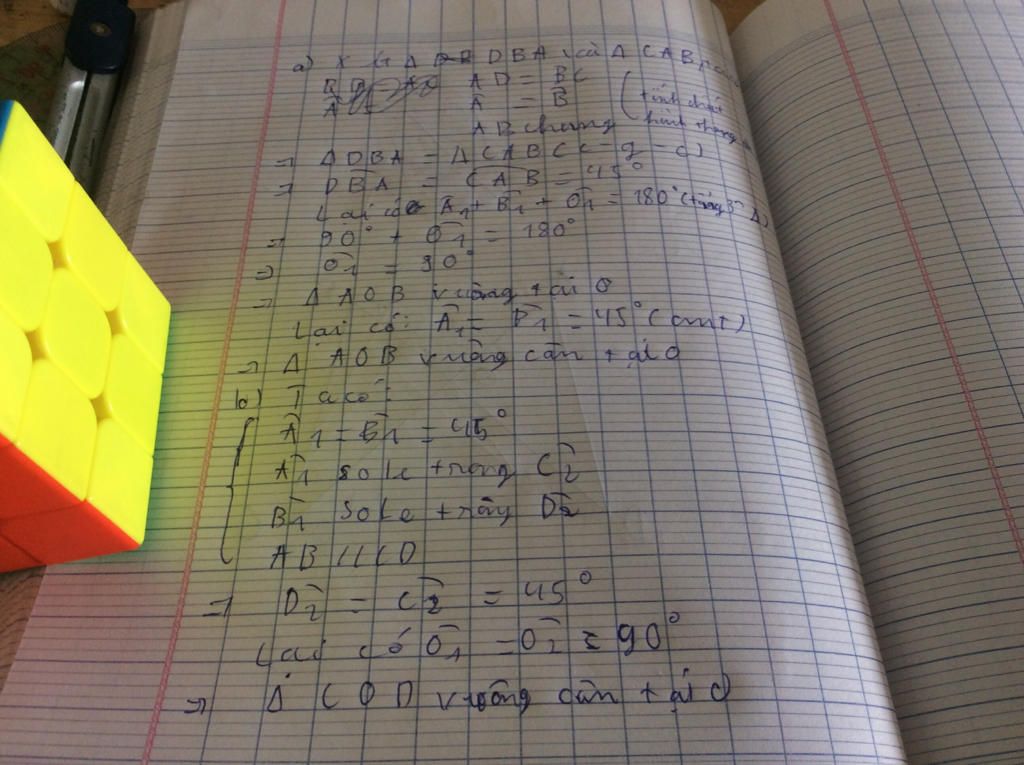 a) Xét Δ DBA và Δ CAB có
AD = BC
A = B (tính chất hình thang
AB chung
=> ΔDBA = ΔCAB (c-g-c)
=> DBA = CAB = 45°
Lại có A1 + B1 + O1 = 180° (tổng 3 Δ)
=> 90° + O1 = 180°
=> O1 = 90°
=> Δ AOB vuông tại O
Lại có: A1 = B1 = 45° (cmt)
=> Δ AOB vuông cân tại O
b) Ta có:
A1 = B1 = 45°
A1 sole trong C2
B1 sole trong D2
AB // CD
=> D2 = C2 = 45°
Lại có O1 = O2 = 90°
=> Δ COD vuông cân tại O